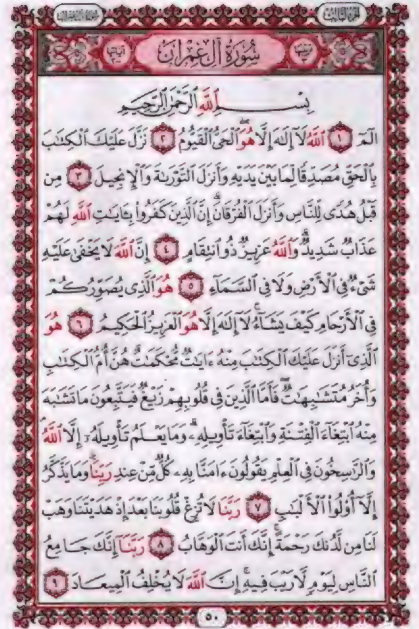 الجزء الثالث
سُورَةُ آلِ عِمْرَانَ
بِسْمِ اللَّهِ الرَّحْمَٰنِ الرَّحِيمِ
الٓمٓ ١ اللَّهُ لَآ إِلَٰهَ إِلَّا هُوَ الْحَىُّ الْقَيُّومُ ٢ نَزَّلَ عَلَيْكَ الْكِتَٰبَ
بِالْحَقِّ مُصَدِّقًا لِّمَا بَيْنَ يَدَيْهِ وَأَنزَلَ التَّوْرَىٰةَ وَالْإِنجِيلَ ٣ مِن
قَبْلُ هُدًى لِّلنَّاسِ وَأَنزَلَ الْفُرْقَانَ ۗ إِنَّ الَّذِينَ كَفَرُوا۟ بِـَٔايَٰتِ اللَّهِ لَهُمْ
عَذَابٌ شَدِيدٌ ۗ وَاللَّهُ عَزِيزٌ ذُو انتِقَامٍ ٤ إِنَّ اللَّهَ لَا يَخْفَىٰ عَلَيْهِ
شَىْءٌ فِى الْأَرْضِ وَلَا فِى السَّمَآءِ ٥ هُوَ الَّذِى يُصَوِّرُكُمْ
فِى الْأَرْحَامِ كَيْفَ يَشَآءُ ۚ لَآ إِلَٰهَ إِلَّا هُوَ الْعَزِيزُ الْحَكِيمُ ٦ هُوَ
الَّذِىٓ أَنزَلَ عَلَيْكَ الْكِتَٰبَ مِنْهُ ءَايَٰتٌ مُّحْكَمَٰتٌ هُنَّ أُمُّ الْكِتَٰبِ
وَأُخَرُ مُتَشَٰبِهَٰتٌ ۖ فَأَمَّا الَّذِينَ فِى قُلُوبِهِمْ زَيْغٌ فَيَتَّبِعُونَ مَا تَشَٰبَهَ
مِنْهُ ابْتِغَآءَ الْفِتْنَةِ وَابْتِغَآءَ تَأْوِيلِهِۦ ۗ وَمَا يَعْلَمُ تَأْوِيلَهُۥٓ إِلَّا اللَّهُ ۗ
وَالرَّٰسِخُونَ فِى الْعِلْمِ يَقُولُونَ ءَامَنَّا بِهِۦ كُلٌّ مِّنْ عِندِ رَبِّنَا ۗ وَمَا يَذَّكَّرُ
إِلَّآ أُو۟لُوا۟ الْأَلْبَٰبِ ٧ رَبَّنَا لَا تُزِغْ قُلُوبَنَا بَعْدَ إِذْ هَدَيْتَنَا وَهَبْ
لَنَا مِن لَّدُنكَ رَحْمَةً ۚ إِنَّكَ أَنتَ الْوَهَّابُ ٨ رَبَّنَآ إِنَّكَ جَامِعُ
النَّاسِ لِيَوْمٍ لَّا رَيْبَ فِيهِ ۚ إِنَّ اللَّهَ لَا يُخْلِفُ الْمِيعَادَ ٩
٥٠